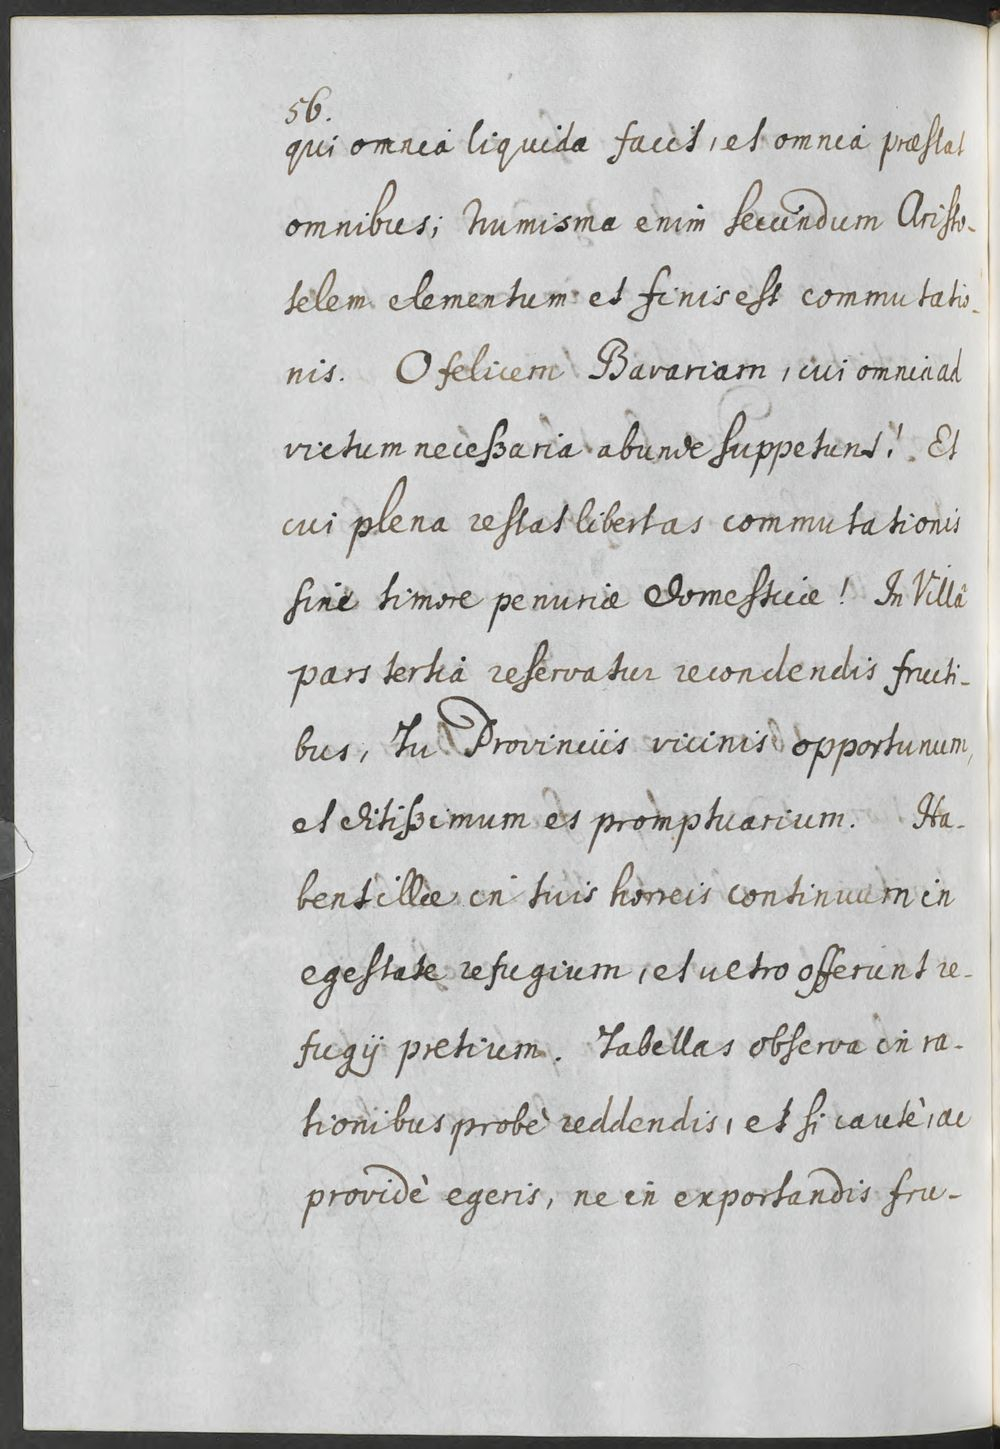 56.
qui omnia liquida facit, et omnia præstat
omnibus; Numisma enim secundum Aristo-
telem elementum et finis est commutatio-
nis. O felicem Bavariam, cui omnia ad
victum neceßaria abunde suppetunt! Et
cui plena restat libertas commutationis
sine timore penuriæ domesticæ! In Villâ
pars tertia reservatur recondendis fructi-
bus, Tu Provinciis vicinis opportunum,
et ditißimum es promptuarium. Ha-
bent illæ in tuis horreis continuum in
egestate refugium, et ultro offerunt re-
fugij pretium. Tabellas observa in ra-
tionibus probè reddendis, et si cautè, ac
providè egeris, ne in exportandis fru-